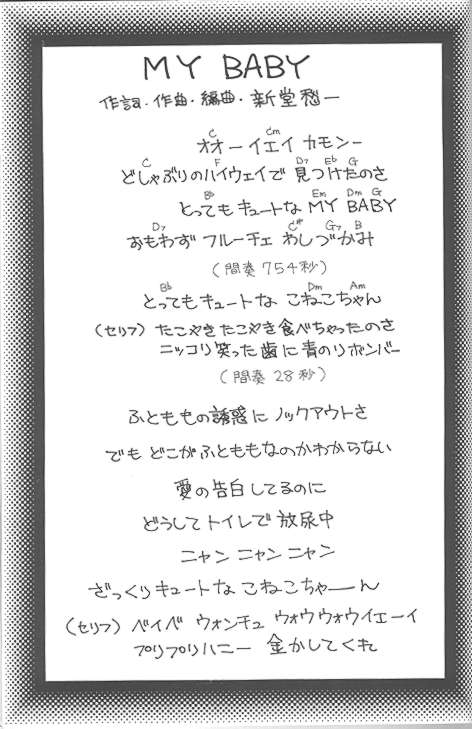 MY BABY
作詞・作曲・編曲・新堂愁一
C Cm
オオーイエイ カモンー
C F D7 Eb G
どしゃぶりのハイウェイで 見つけたのさ
Bb Em Dm G
とってもキュートな MY BABY
D7 C# G7 B
おもわず フルーチェ わしづかみ
(間奏 754秒)
Bb Dm Am
とってもキュートな こねこちゃん
(セリフ) たこやきたこやき食べちゃったのさ
ニッコリ笑った歯に青のリボンバー
(間奏 28秒)
ふとももの誘惑に ノックアウトさ
でも どこがふとももなのかわからない
愛の告白してるのに
どうしてトイレで 放尿中
ニャン ニャン ニャン
ざっくりキュートな こねこちゃーん
(セリフ) ベイベ ウォンチュ ウォウウォウイエーイ
プリプリハニー 金かしてくれ